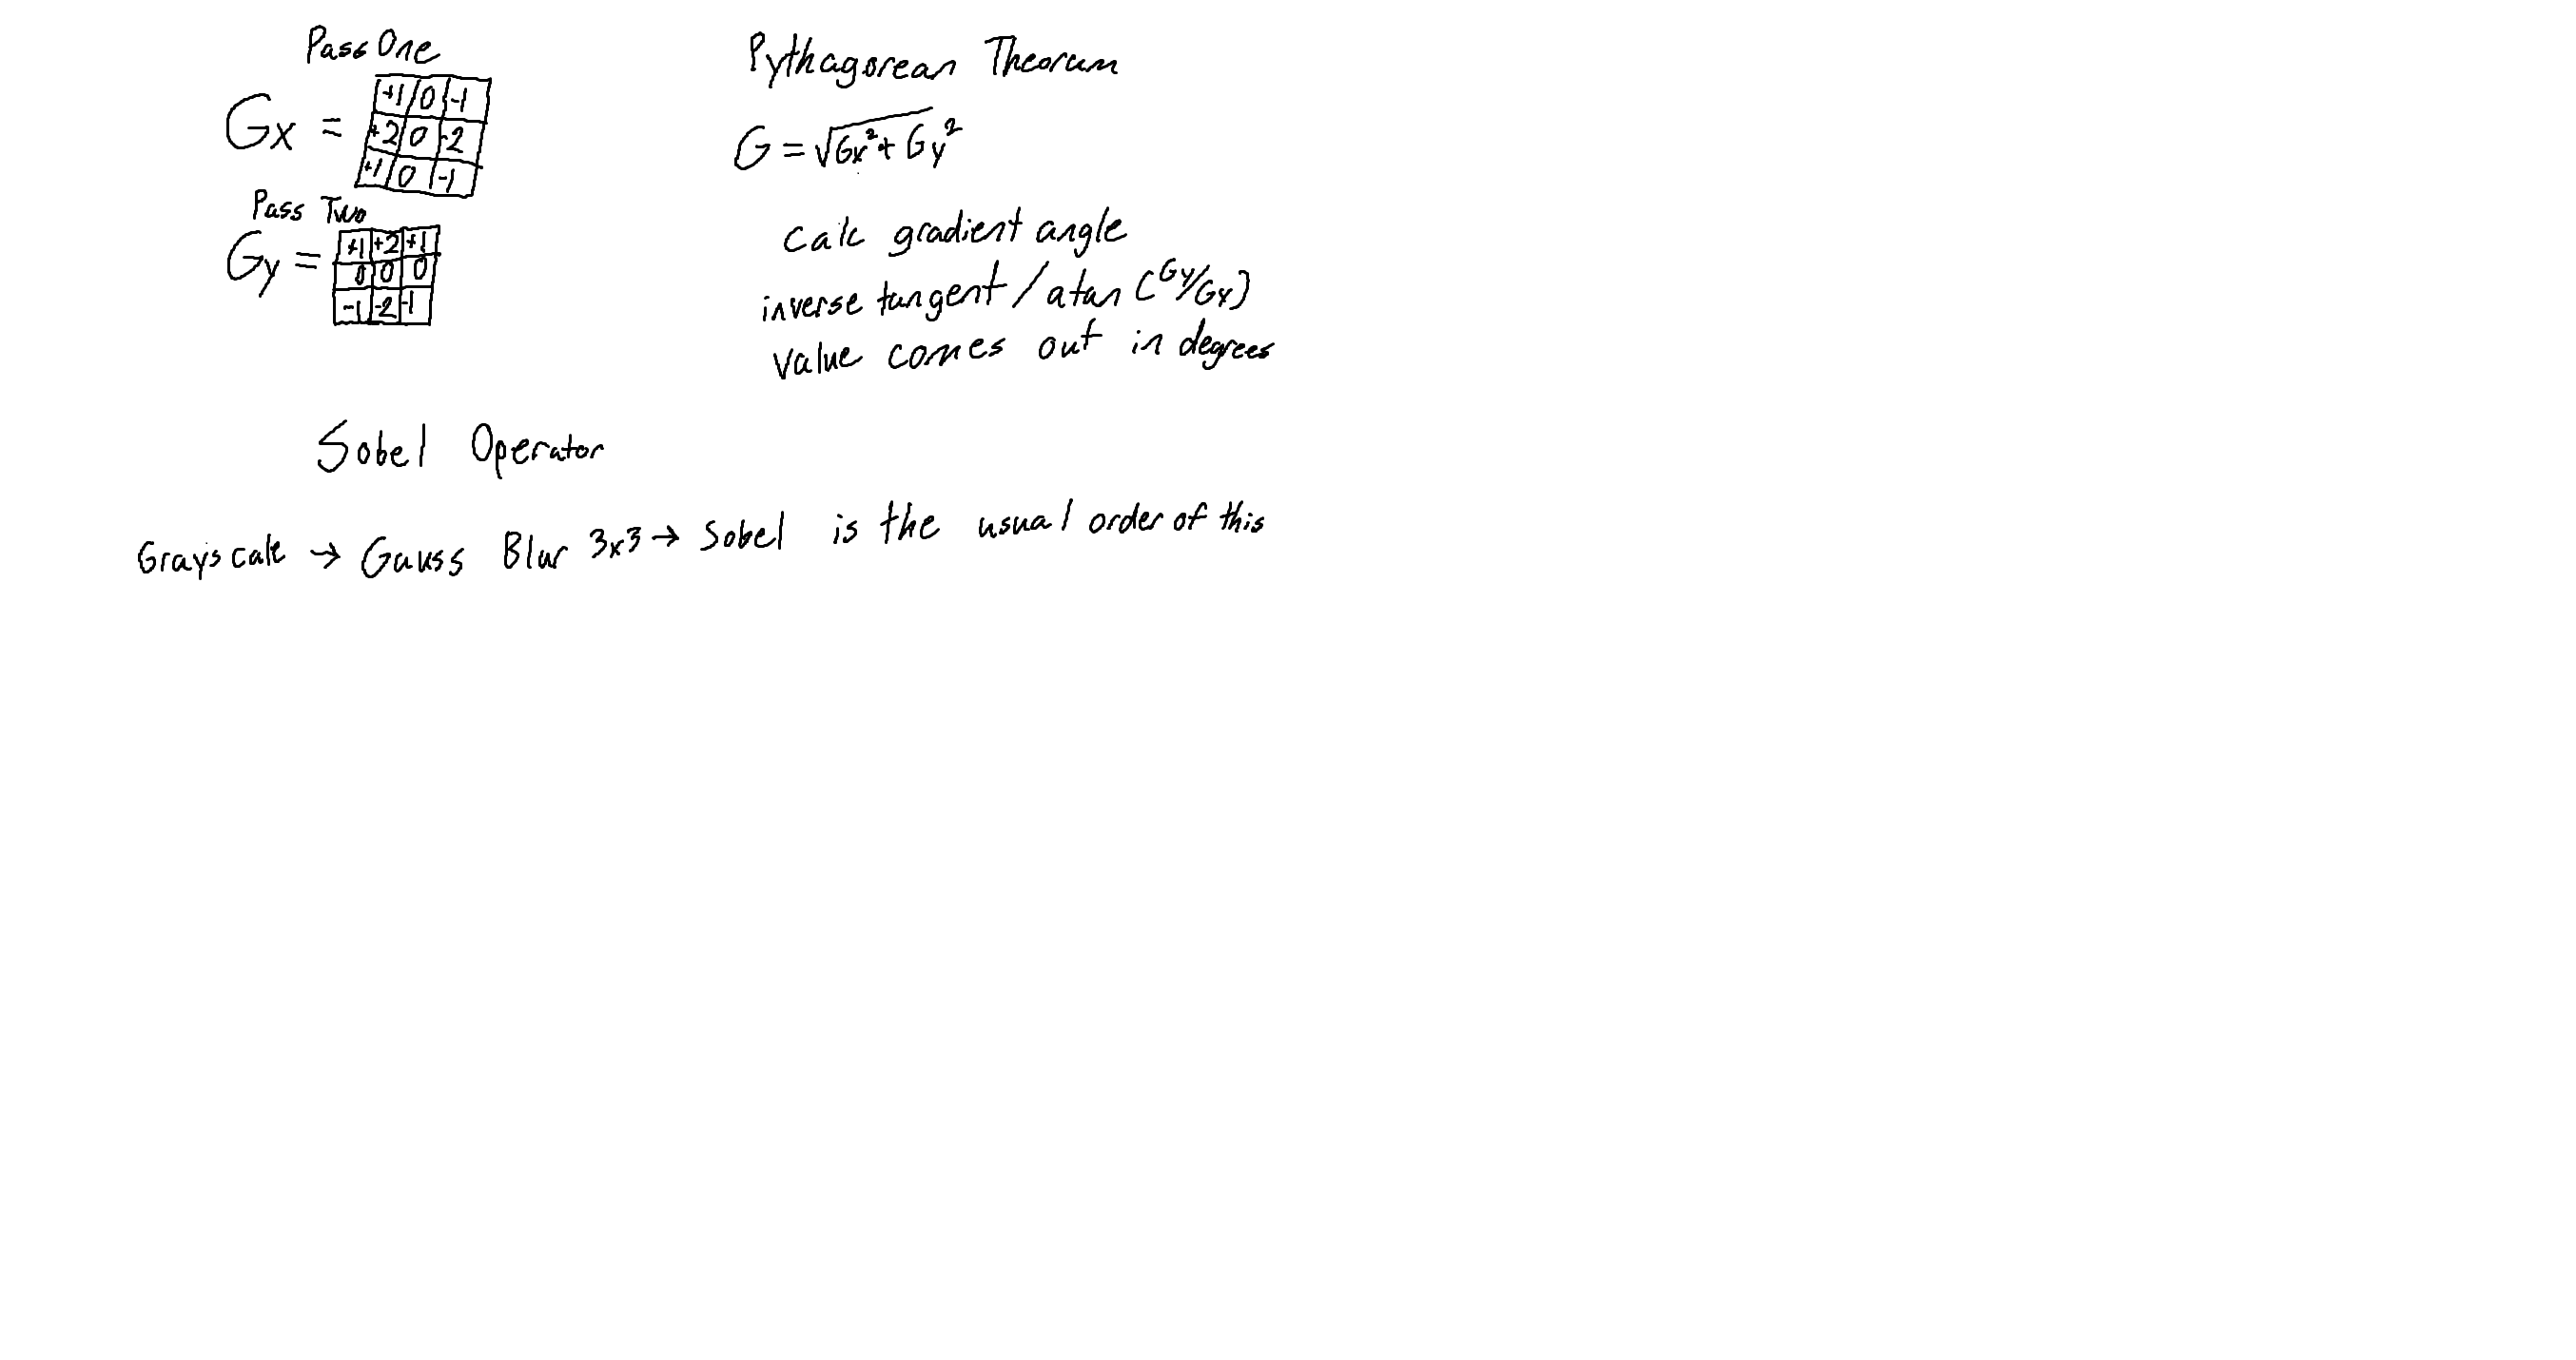 Pass One
Gx =
+1 0 -1
+2 0 -2
+1 0 -1
Pass Two
Gy =
+1 +2 +1
0 0 0
-1 -2 -1
Pythagorean Theorum
G = √Gx²+Gy²
Calc gradient angle
inverse tangent / atan (Gy/Gx)
Value comes out in degrees
Sobel Operator
Grayscale → Gauss Blur 3x3 → Sobel is the usual order of this